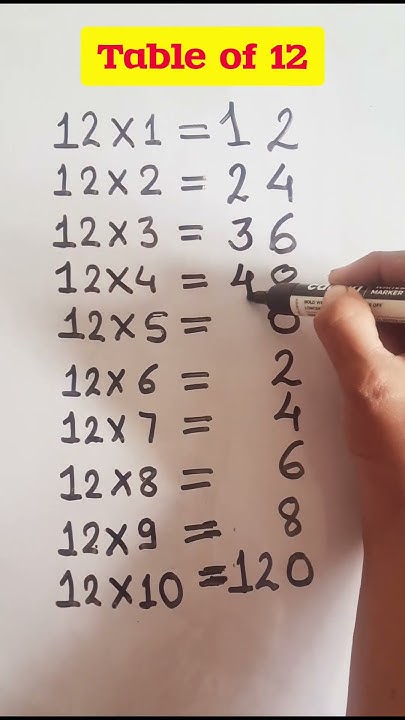 Table of 12
12×1 = 12
12×2 = 24
12×3 = 36
12×4 = 48
12×5 = 0
12×6 = 2
12×7 = 4
12×8 = 6
12×9 = 8
12×10 = 120
MARKER